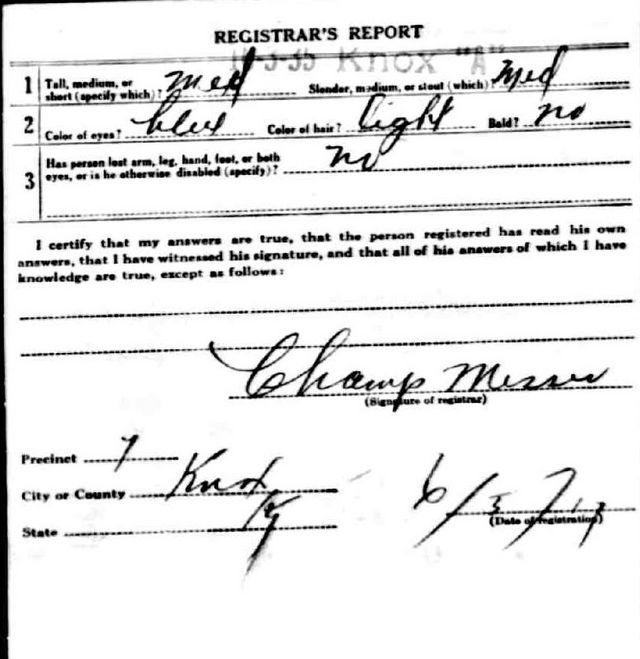 REGISTRAR'S REPORT
Knox "A"
1 Tall, medium, or short (specify which)? Med Slender, medium, or stout (which)? Med
2 Color of eyes? blue Color of hair? light Bald? no
3 Has person lost arm, leg, hand, foot, or both
eyes, or is he otherwise disabled (specify)? no
I certify that my answers are true, that the person registered has read his own
answers, that I have witnessed his signature, and that all of his answers of which I have
knowledge are true, except as follows:
Champ Messer
(Signature of registrar)
Precinct 7
City or County Knox
State Ky
6/5/17
(Date of registration)